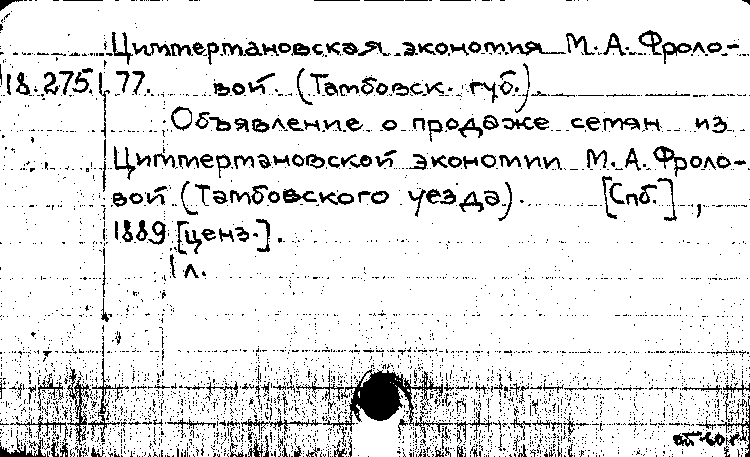 Циммермановская экономия М. А. Фроло-
18.275.1.77. вой. (Тамбовск. губ.).
Объявление о продаже семян из
Циммермановской экономии М. А. Фроло-
вой (Тамбовского уезда). [Спб.],
1889 [ценз.].
1 л.